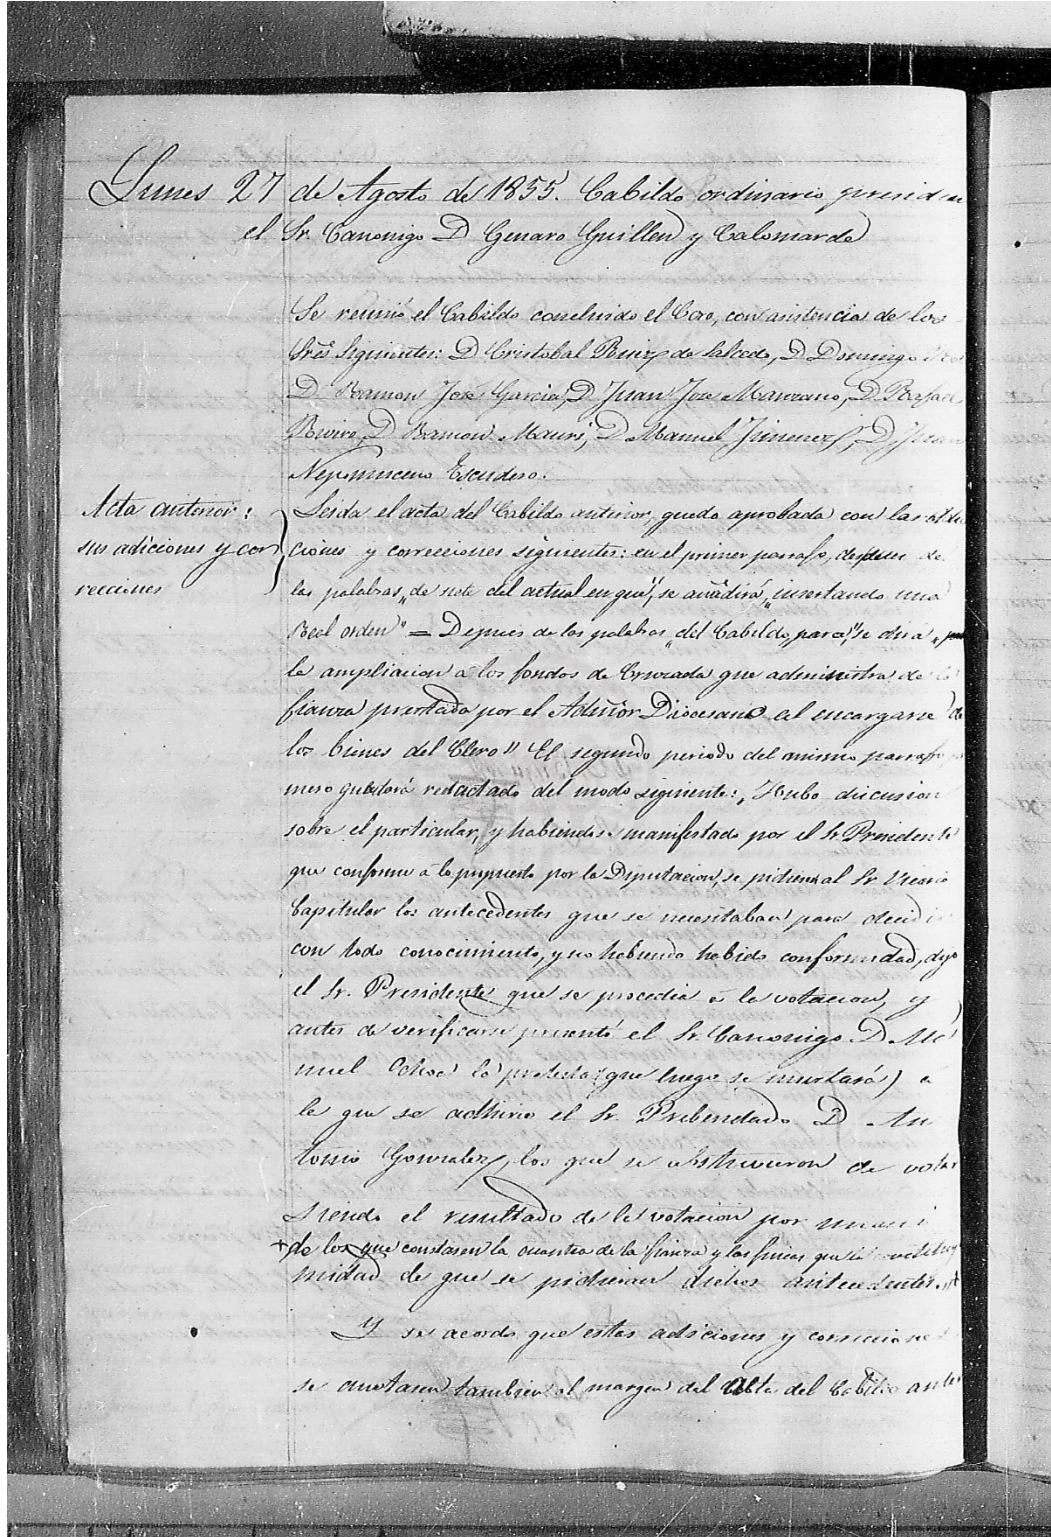 Lunes 27 de Agosto de 1855. Cabildo ordinario presiden
el Sr. Canonigo D Genaro Guillen y Calomarde
Se reunió el Cabildo concluido el Coro, con asistencia de los
Sres Siguientes: D Cristobal Ruiz de Salcedo, D Domingo
D Ramon José Garcia, D Juan Jose Manzano, D. Rafael
Rivero, D Ramon Mauri, D Manuel Jimenez, D Juan
Nepomuceno Escudero.
Acta anterior:
sus adiciones y cor
recciones
Leida el acta del Cabildo anterior, quedo aprobada con las adi
ciones y correcciones siguientes: en el primer parrafo, despues de
las palabras "de siete del actual en que", se añadirá "insertando una
Real orden" = Depues de las palabras "del Cabildo, para", se dira "para
la ampliacion á los fondos de Cruzada que administra de la
fianza prestada por el Admõr Diocesano al encargarse de
los bienes del Clero" El segundo periodo del mismo parrafo
mero quedará redactado del modo siguiente: "Hubo discusion
sobre el particular, y habiendose manifestado por el Sr Presidente
que conforme á lo propuesto por la Diputacion, se pidiese al Sr. Vicario
Capitular los antecedentes que se necesitaban para decidir
con todo conocimiento, y no habiendo habido conformidad, dijo
el Sr. Presidente que se procedia á la votacion, y
antes de verificarse presentó el Sr. Canonigo D. Ma
nuel Ochoa la protesta (que luego se insertará) á
la que se adhirio el Sr. Prebendado D. An
tonio Gonzalez, los que se abstuvieron de votar
siendo el resultado de la votacion por unani
+ de los que constasen la cuantia de la fianza y las fincas que la
midad de que se pidieran dichos antecedentes.+
Y se acordo que estas adiciones y correcciones
se anotasen tambien al margen del acta del Cabildo ante